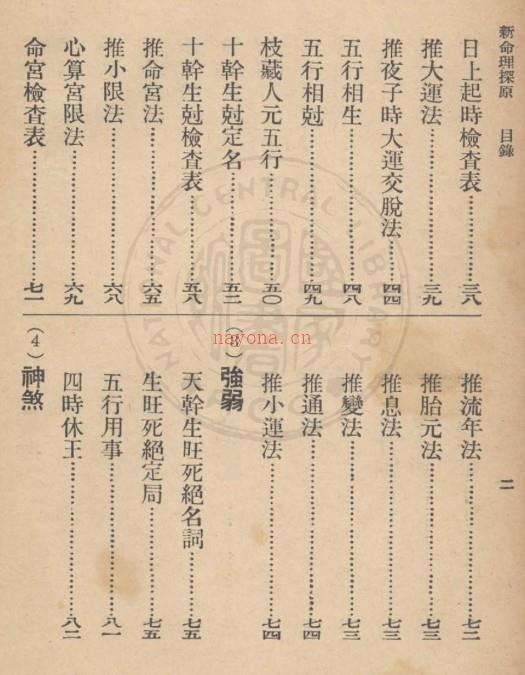 新命理探原　目錄
日上起時檢查表⋯⋯三八
推大運法⋯⋯三九
推夜子時大運交脫法⋯⋯四四
五行相生⋯⋯四八
五行相尅⋯⋯四九
枝藏人元五行⋯⋯五〇
十幹生尅定名⋯⋯五二
十幹生尅檢查表⋯⋯五八
推命宮法⋯⋯六五
推小限法⋯⋯六八
心算宮限法⋯⋯六九
命宮檢查表⋯⋯七一
二
推流年法⋯⋯七二
推胎元法⋯⋯七三
推息法⋯⋯七三
推變法⋯⋯七三
推通法⋯⋯七四
推小運法⋯⋯七四
（3）強弱
天幹生旺死絕名詞⋯⋯七五
生旺死絕定局⋯⋯七五
五行用事⋯⋯八一
四時休王⋯⋯八二
（4）神煞
NATIONAL CENTRAL LIBRARY
nayona.cn